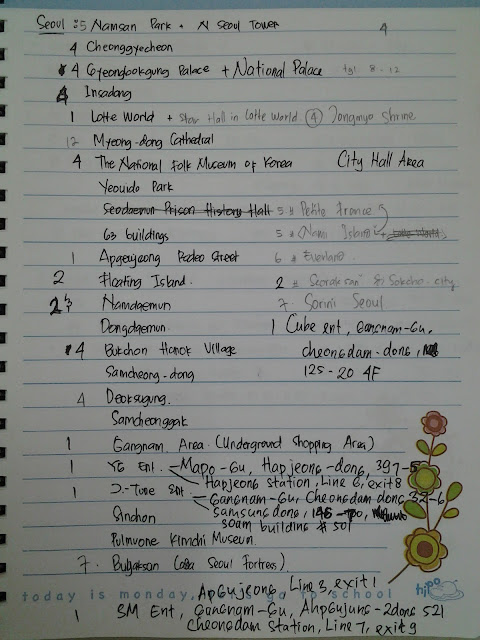 Seoul : 5 Namsan Park + N Seoul Tower 4
4 Cheonggyecheon
4 Gyeongbokgung Palace + National Palace tgl 8-12
4 Insadong
1 Lotte World + Star Hall in Lotte World (4) Jongmyo Shrine
12 Myeong-dong Cathedral
4 The National Folk Museum of Korea City Hall Area
Yeouido Park
Seodaemun Prison History Hall 5 Petite France
63 buildings 5 Nami Island + Lotte World
1 Apgeujeong Rodeo Street 6 Everland
2 Floating Island. 2 Seoraksan & Sokcho city
2 Namdaemun 7. Sorini Seoul
Dongdaemun. 1 Cube ent, Gangnam-Gu,
4 Bukchon Hanok Village cheongdam-dong,
Samcheong-dong 125-20 4F
4 Deoksugung.
Samcheonggak
1 Gangnam Area (Underground Shopping Area)
1 YG Ent. Mapo-Gu, Hapjeong-dong, 397-5
Hapjeong Station, Line 6, exit 8
1 J-Tune Ent Gangnam-Gu, Cheongdam dong 32-6
Sinchon Samsung dong,
Soam building # 501
Pulmuone Kimchi Museum
7. Bugaksan (aka Seoul Fortress)
Apgujeong, Line 3, exit 1
today is monday, go to school hipo
1 SM Ent, Gangnam-Gu, Ahpgujung-2dong 521
Cheongdam Station, Line 7, exit 9